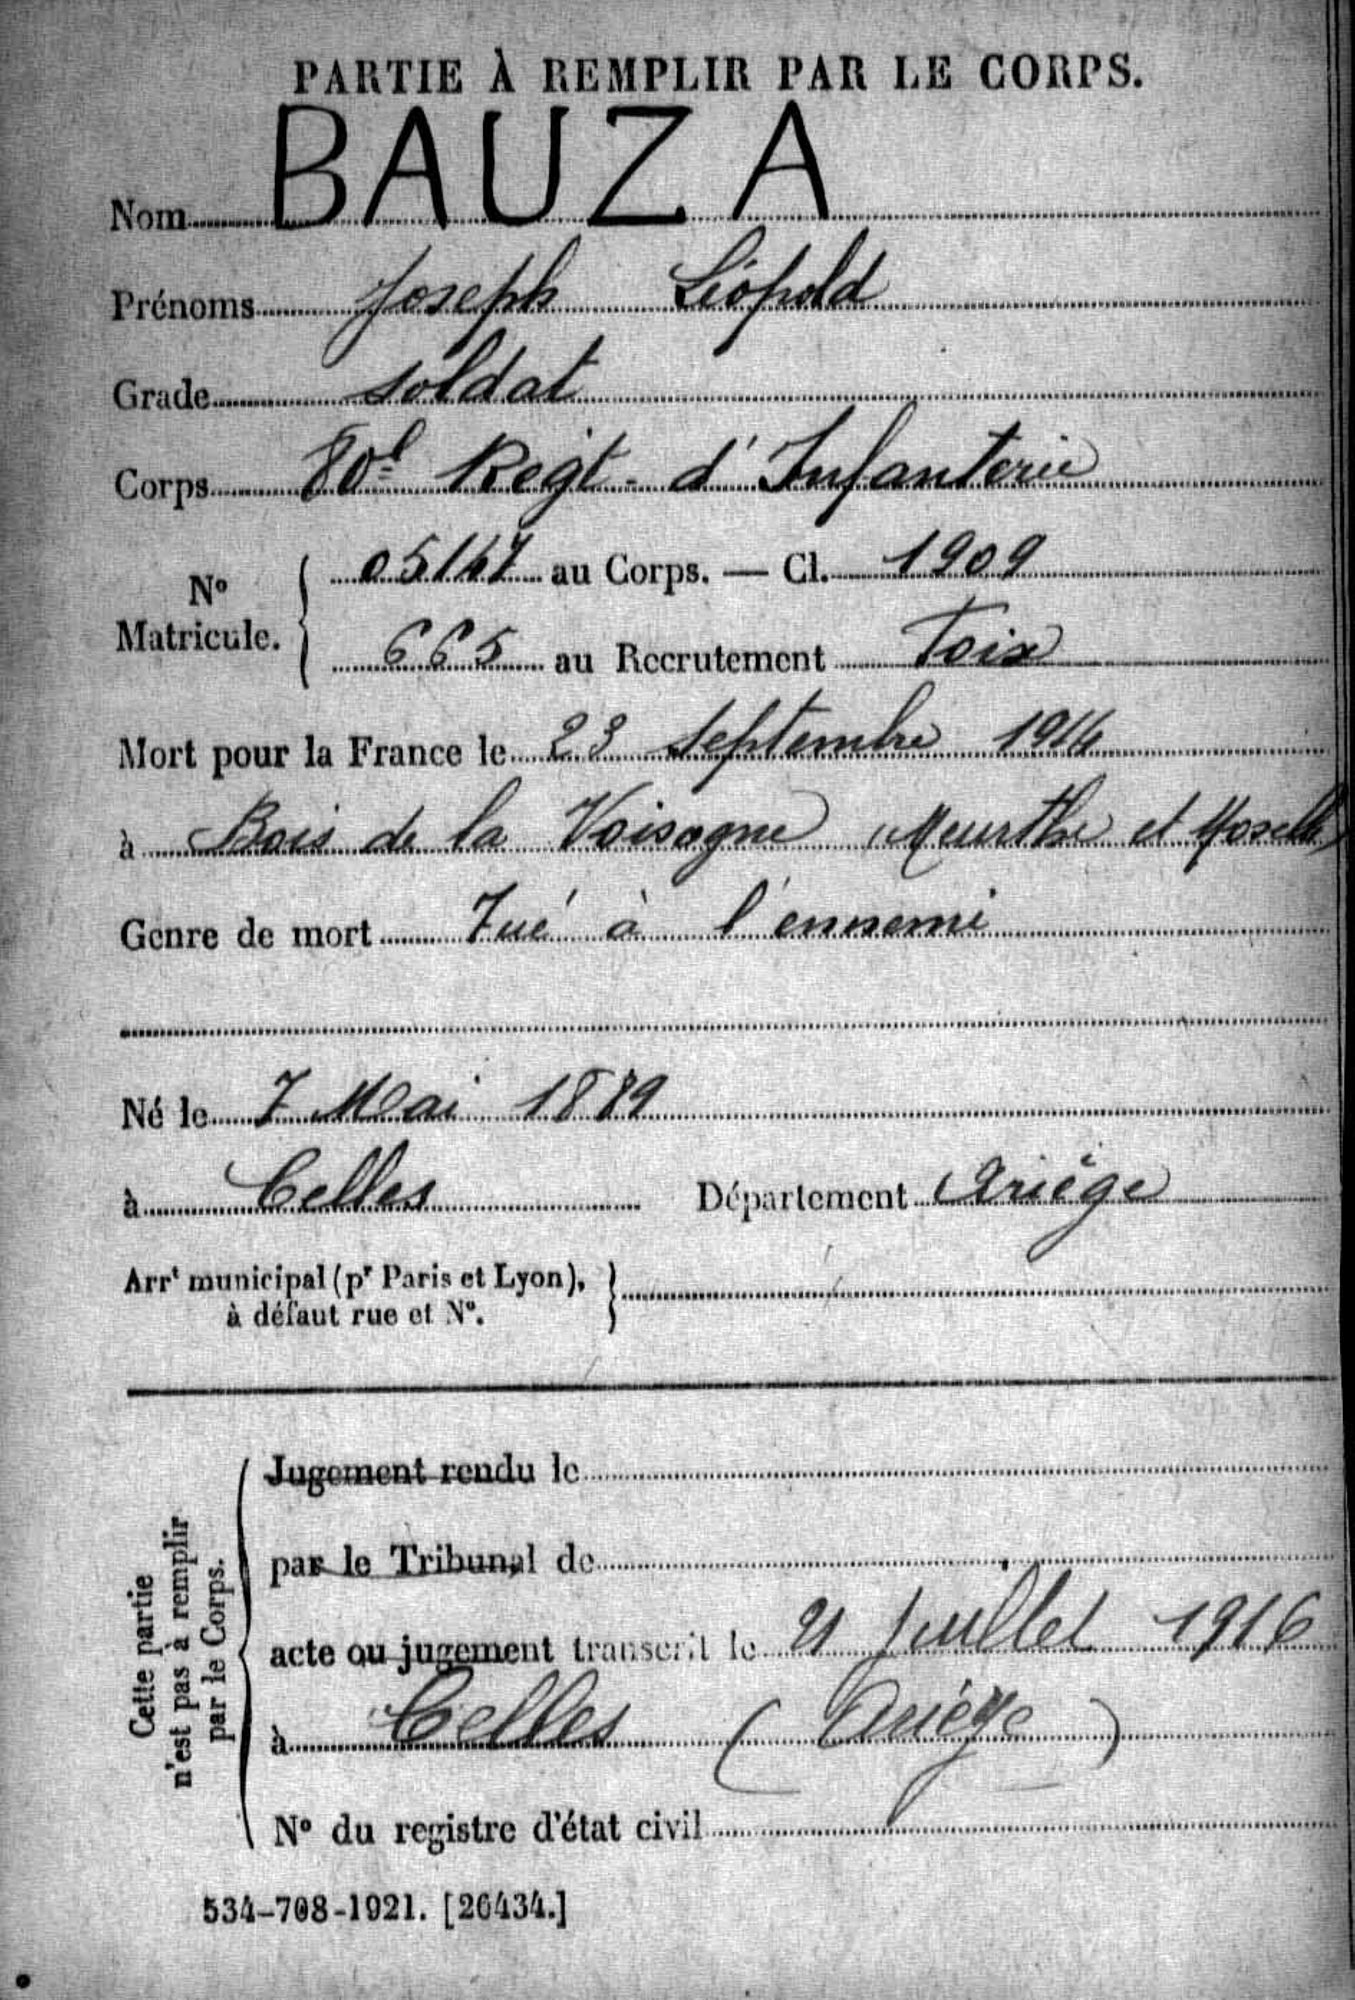 PARTIE À REMPLIR PAR LE CORPS.
Nom BAUZA
Prénoms Joseph Léopold
Grade soldat
Corps 80e Regt. d'Infanterie
No Matricule. 05147 au Corps. — Cl. 1909
665 au Recrutement Foix
Mort pour la France le 23 Septembre 1914
à Bois de la Voisogne (Meurthe et Moselle)
Genre de mort Tué à l'ennemi
Né le 7 Mai 1889
à Celles Département Ariège
Arrt municipal (pr Paris et Lyon),
à défaut rue et No.
Cette partie
n'est pas à remplir
par le Corps.
Jugement rendu le
par le Tribunal de
acte ou jugement transcrit le 21 Juillet 1916
à Celles (Ariège)
No du registre d'état civil
534-708-1921. [26434.]